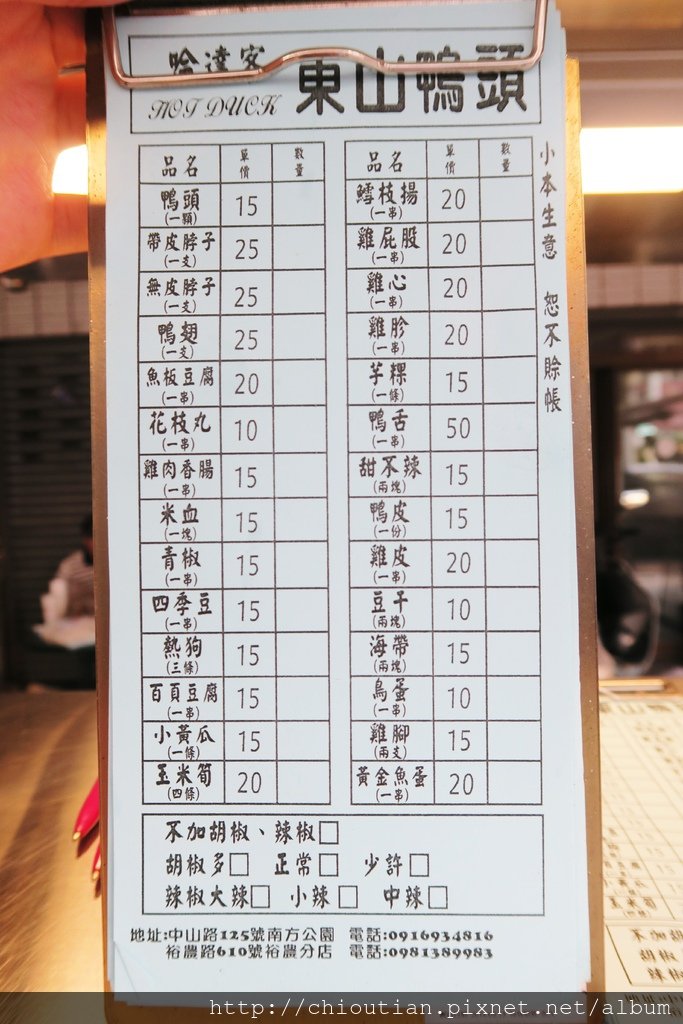 哈達客
HOT DUCK
東山鴨頭
小本生意 恕不賒帳
品名 單價 數量
鴨頭(一顆) 15
帶皮脖子(一支) 25
無皮脖子(一支) 25
鴨翅(一支) 25
魚板豆腐(一串) 20
花枝丸(一串) 10
雞肉香腸(一串) 15
米血(一塊) 15
青椒(一串) 15
四季豆(一串) 15
熱狗(三條) 15
百頁豆腐(一串) 15
小黃瓜(一條) 15
玉米筍(四條) 20
品名 單價 數量
鱈枝揚(一串) 20
雞屁股(一串) 20
雞心(一串) 20
雞胗(一串) 20
芋粿(一條) 15
鴨舌(一串) 50
甜不辣(兩塊) 15
鴨皮(一份) 15
雞皮(一串) 20
豆干(兩塊) 10
海帶(兩塊) 15
鳥蛋(一串) 10
雞腳(兩支) 15
黃金魚蛋(一串) 20
不加胡椒、辣椒□
胡椒多□ 正常□ 少許□
辣椒大辣□ 小辣□ 中辣□
地址:中山路125號南方公園 電話:0916934816
裕農路610號裕農分店 電話:0981389983
http://chioutian.pixnet.net/album